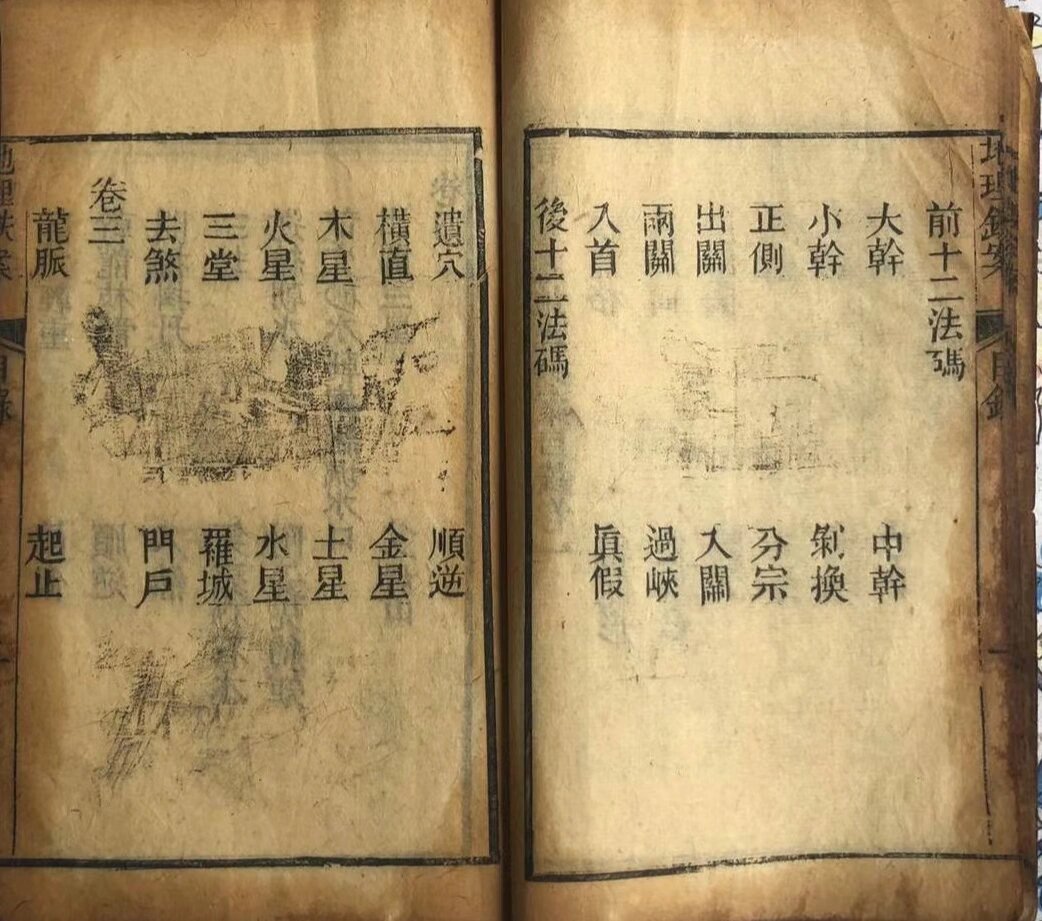 地理鐵案 目錄 一
前十二法碼
大幹 中幹
小幹 剝換
正側 分宗
出關 入關
兩關 過峽
入首 眞假
後十二法碼
遺穴 順逆
橫直 金星
木星 土星
火星 水星
三堂 羅城
去煞 門戶
卷三
龍脈 起止